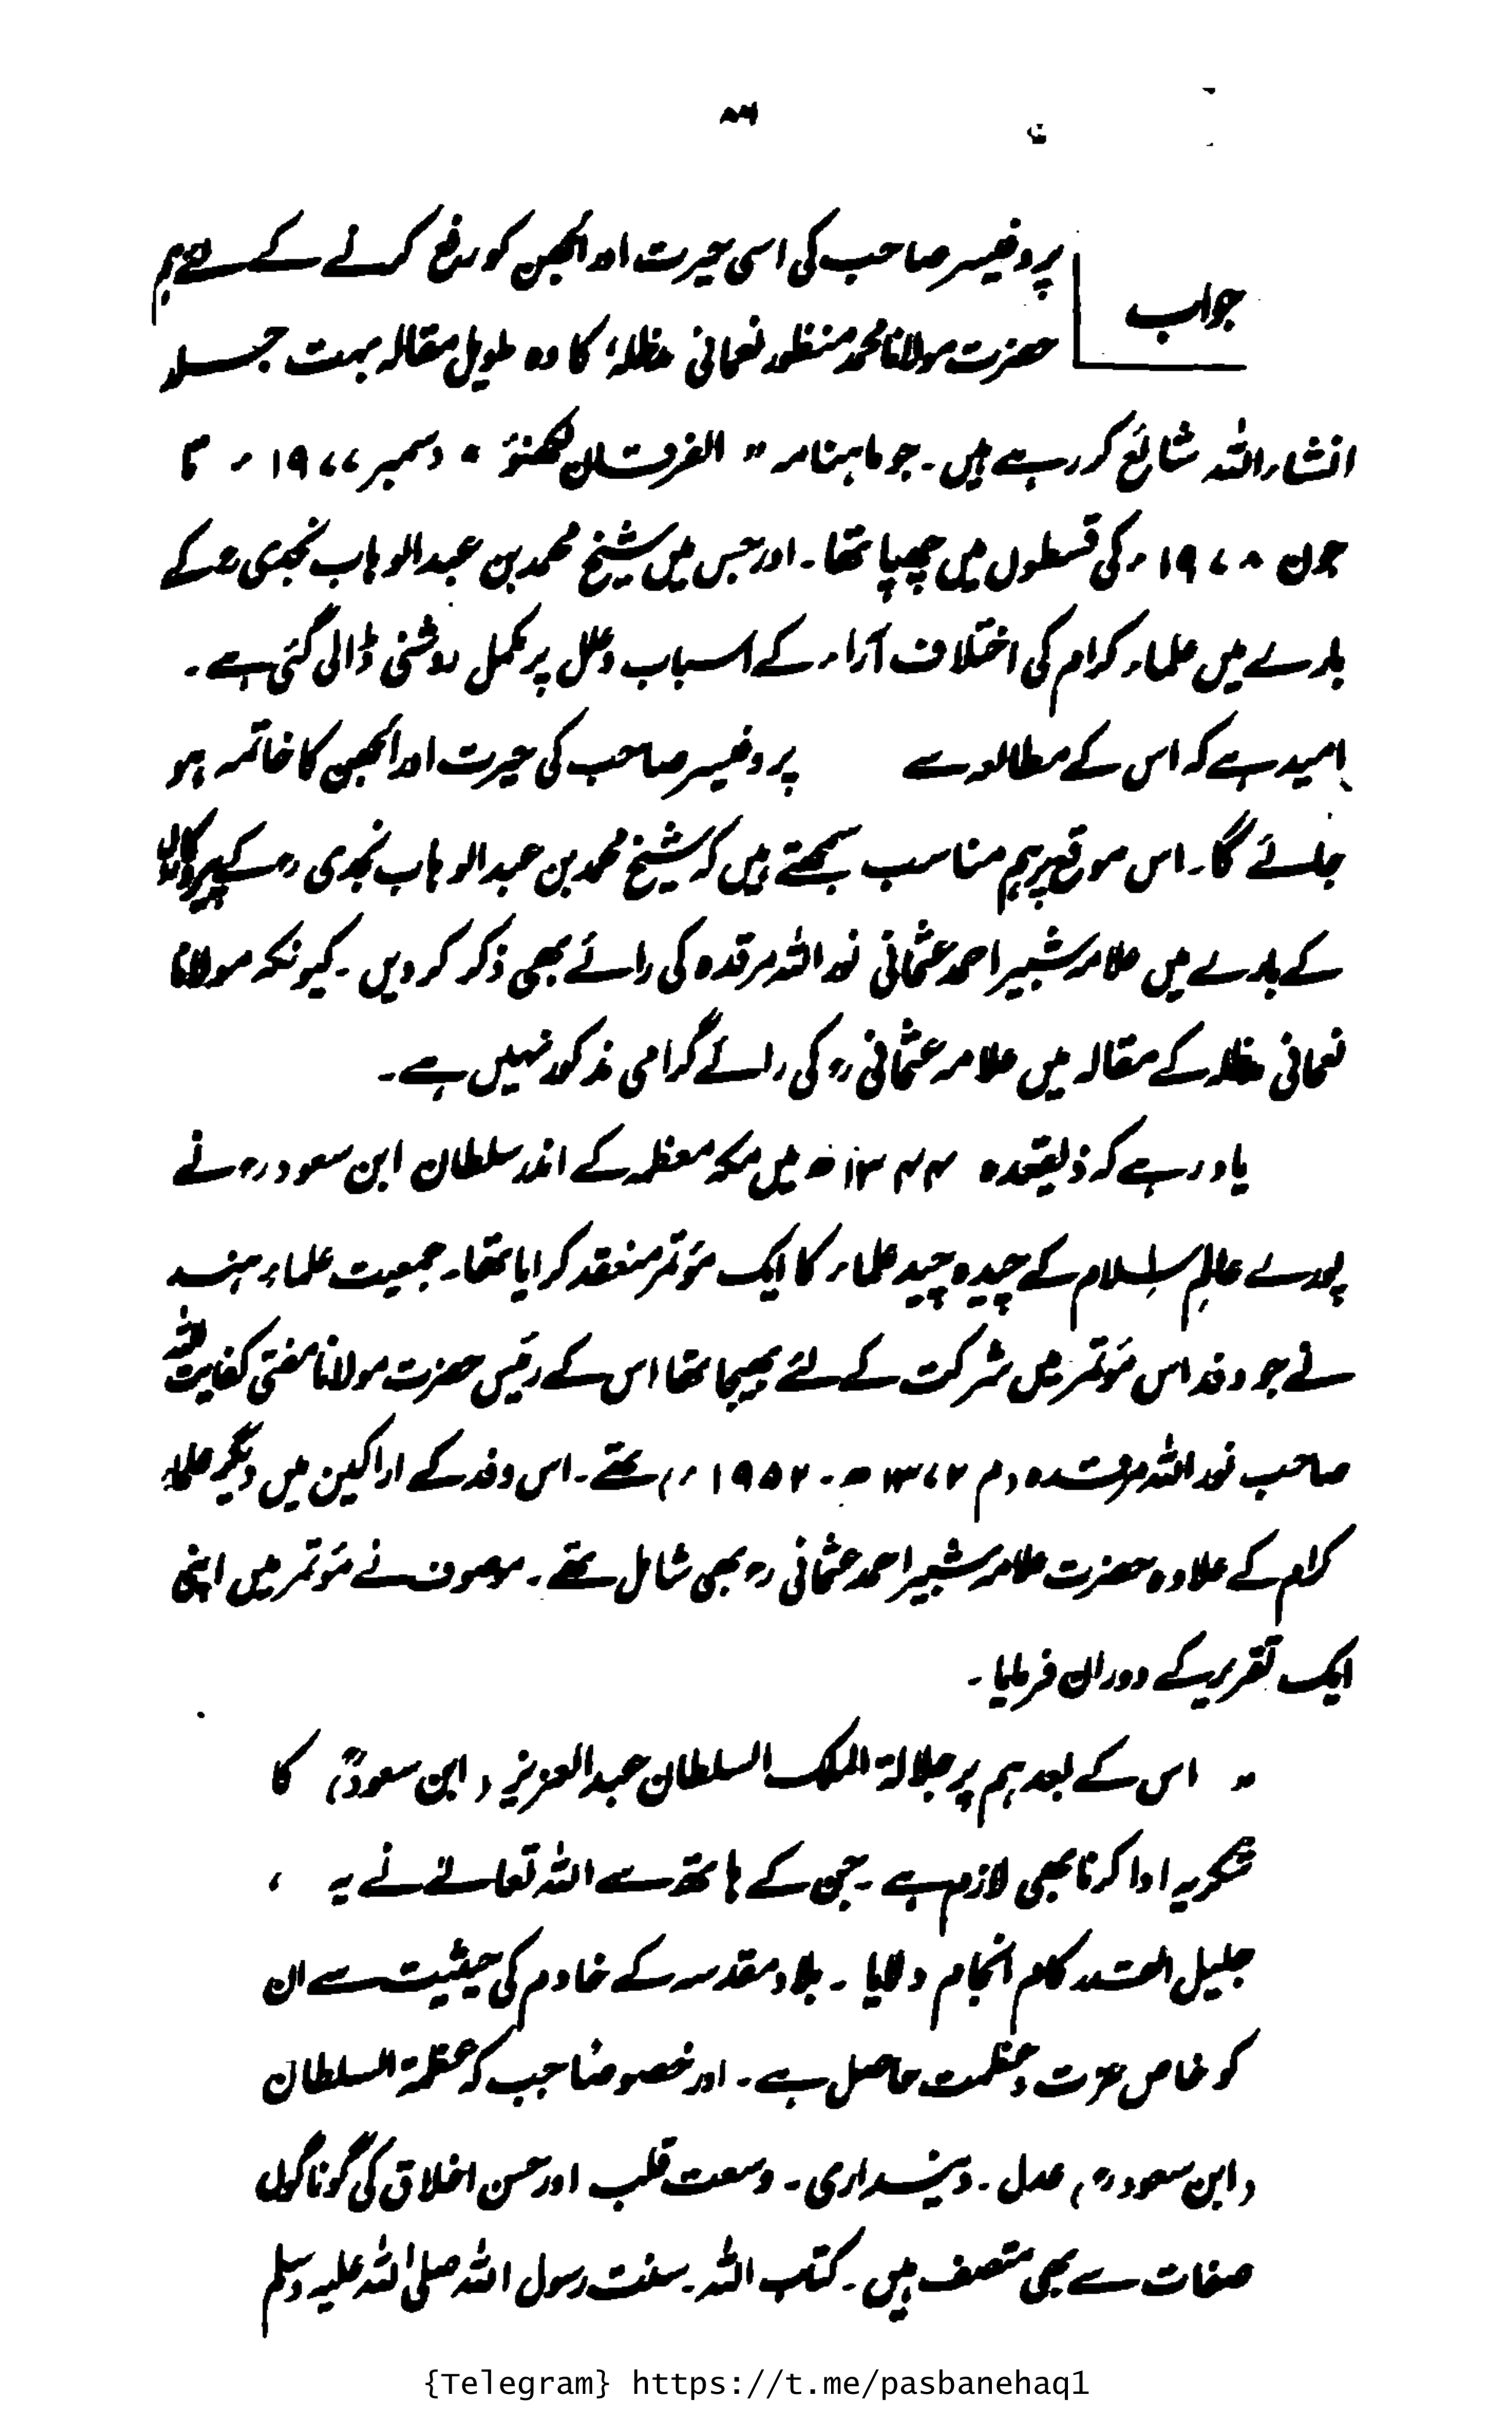 جواب
پروفیسر صاحب کی اسی حیرت اور الجھن کو رفع کرنے کے لئے ہم
حضرت مولانا محمد منظور نعمانی مدظلہٗ کا وہ طویل مقالہ بہت جلد
انشاء اللہ شائع کر رہے ہیں۔ جو ماہنامہ " الفرقان لکھنؤ " دسمبر ۱۹۷۷ء تا
جون ۱۹۷۸ء کی قسطوں میں چھپا تھا۔ اور جس میں شیخ محمد بن عبدالوہاب نجدی رہ کے
بارے میں علماء کرام کی اختلاف آراء کے اسباب و علل پر مکمل روشنی ڈالی گئی ہے۔
امید ہے کہ اس کے مطالعہ سے پروفیسر صاحب کی حیرت اور الجھن کا خاتمہ ہو
جائے گا۔ اس موقع پر ہم مناسب سمجھتے ہیں کہ شیخ محمد بن عبدالوہاب نجدی رہ کے پیروکاروں
کے بارے میں علامہ شبیر احمد عثمانی نور اللہ مرقدہ کی رائے بھی ذکر کر دیں۔ کیونکہ مولانا
نعمانی مدظلہ کے مقالہ میں علامہ عثمانی رہ کی رائے گرامی مذکور نہیں ہے۔
یاد رہے کہ ذیقعدہ ۱۳۴۴ھ میں مکہ معظمہ کے اندر سلطان ابن سعود رہ نے
پورے عالمِ اسلام کے چیدہ چیدہ علماء کا ایک مؤتمر منعقد کرایا تھا۔ جمعیت علماء ہند
نے جو وفد اس مؤتمر میں شرکت کے لئے بھیجا تھا اس کے رئیس حضرت مولانا مفتی کفایت اللہ
صاحب نور اللہ مرقدہ (م ۱۳۷۲ھ ۔ ۱۹۵۲ء) تھے۔ اس وفد کے اراکین میں دیگر علماء
کرام کے علاوہ حضرت علامہ شبیر احمد عثمانی رہ بھی شامل تھے۔ موصوف نے مؤتمر میں اپنی
ایک تقریر کے دوران فرمایا۔
" اس کے بعد ہم پر جلالۃ الملک السلطان عبدالعزیز (ابن سعودؒ) کا
شکریہ ادا کرنا بھی لازم ہے۔ جن کے ہاتھ سے اللہ تعالےٰ نے یہ ،
جلیل القدر کام انجام دلایا ۔ بلاد مقدسہ کے خادم کی حیثیت سے ان
کو خاص عزت و عظمت حاصل ہے۔ اور خصوصاً جب کہ عظمۃ السلطان
(ابن سعود رہ) عدل ۔ دینداری ۔ وسعت قلب اور حسن اخلاق کی گوناگوں
صفات سے بھی متصف ہیں۔ کتاب اللہ۔ سنت رسول اللہ صلی اللہ علیہ وسلم
{Telegram} https://t.me/pasbanehaq1